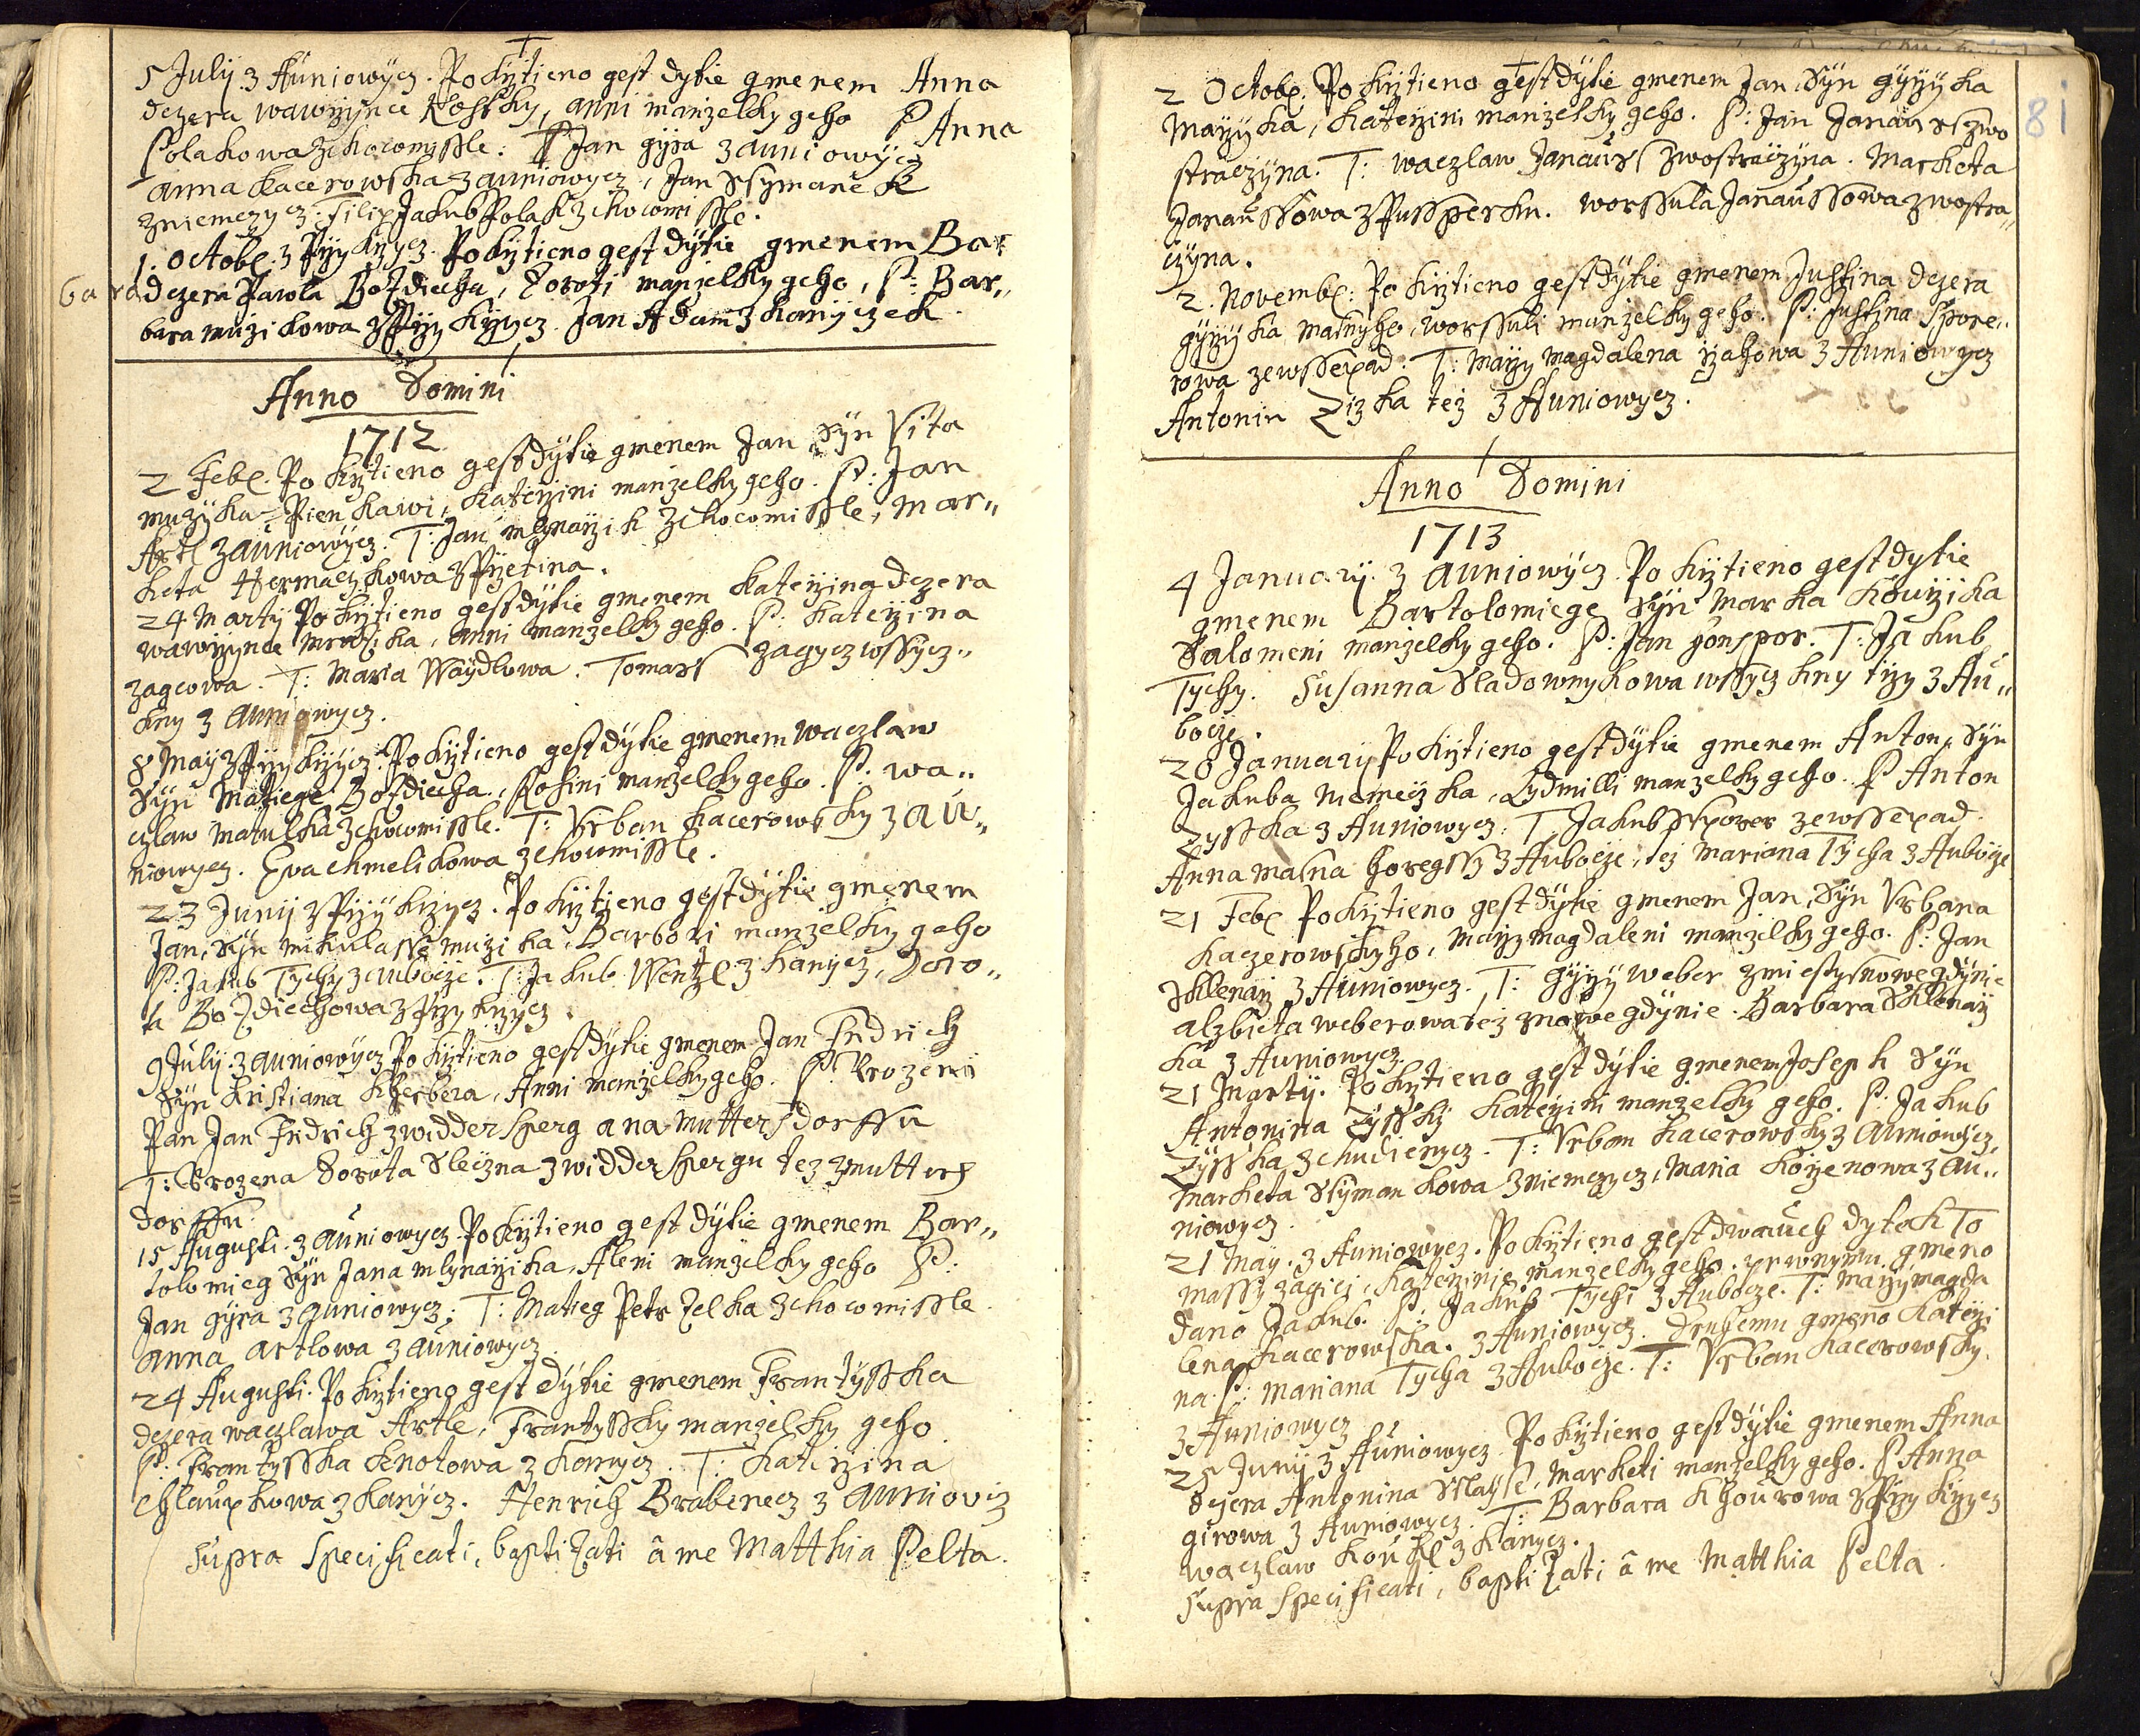 5 July. z Auniowycz. Pokrztieno gest dytie gmenem Anna
dczera wawrzynce Kossky, anni manzelky geho P Anna
Polakowa z chocomyssle: T Jan gyra z auniowycz
anna kacerowska z auniowycz, Jan Ssymanek
z niemczycz: Filip Jakub Polak z chocomissle.
1. Octobr. z Przykrzycz. Pokrztieno gest dytie gmenem Bar
bara dczera Pawla Bozdiecha, Doroti manzelky geho, P: Bar„
bara muzikowa z Przykrzycz. Jan Adam z kanyczek.
Anno Domini
1712
2 Febr. Pokrztieno gest dytie gmenem Jan Syn Vita
muzyka Pienkawi, Katerzini manzelky geho. P: Jan
Artl z auniowycz. T: Jan mlynarzik z chocomissle, mar„
keta Hermaczkowa z Przetina.
24 Marty Pokrztieno gest dytie gmenem katerzina dczera
wawrzynce mrazika, anni manzelky geho. P: Katerzina
zagcowa. T: Maria Waydlowa. Tomass zagycz wssycz„
kny z auniowycz.
8 May z Przykrzycz. Pokrztieno gest dytie gmenem waczlaw
Syn Matiege Bozdiecha, Rosini manzelky geho. P. wa„
czlaw matulka z chocomissle. T: Vrban kacerowsky z au„
niowycz. Eva chmelikowa z chocomissle.
23 Juny z Przykrzycz. Pokrztieno gest dytie gmenem
Jan, Syn mikulasse muzika, Barbori manzelky geho
P: Jakub Tychy z aubocze. T: Jakub Wentzl z kanycz, Doro„
ta Bozdiechowa z Przykrzycz.
9 July. z auniowycz Pokrztieno gest dytie gmenem Jan Fridrich
Syn Kristiana Kherbera, Anni manzelky geho. P: Urozeni
Pan Jan Fridrich z widdersperg a na Muttersdorffu
T: Urozena Dorota Sleczna z widderspergu tez z mutters
dorffu.
15 Augusti. z auniowycz. Pokrztieno gest dytie gmenem Bar„
tolomieg Syn Jana mlynarzika, Aleni manzelky geho P:
Jan gyra z auniowycz: T: Matieg Petrzelka z chocomissle
anna artlowa z auniowycz
24 Augusti. Pokrztieno gest dytie gmenem Frantysska
dczera waczlawa Artle, Frantyssky manzelky geho.
P: Frantysska knotowa z kanycz. T: Katerzina
Chlaupkowa z kanycz. Henrich Brabenecz z auniowicz
Supra Specificati, baptizati â me Matthia Pelta.
2 Octobr. Pokrztieno gest dytie gmenem Jan, Syn gyrzyka
mayzyka, Katerzini manzelky geho. P: Jan Janaus z wo
straczyna. T: waczlaw Janauss z wostraczyna. Marketa
Janaussowa z Pussperku. worssula Janaussowa z wostra„
czyna.
2. Novembr: Pokrztieno gest dytie gmenem Justina dczera
gyrzyka malnyho, worssuli manzelky geho. P: Justina Spore„
rowa ze wsserpad. T: Marzy magdalena rzahowa z Auniowycz
Antonin Zizka tez z Auniowycz.
81
Anno Domini
1713
4 January. z auniowycz. Pokrztieno gest dytie
gmenem Bartolomiege Syn Marka Kourzika
Salomeni manzelky geho. P: Jan honspor. T: Jakub
Tychy. Susanna Sladownykowa wssyczkny trzy z Au„
bocze.
28 January Pokrztieno gest dytie gmenem Anton, Syn
Jakuba niemeczka, Lydmilli manzelky geho. P Anton
Zysska z Auniowycz. T Jakub Sporer ze wsserpad.
Anna malna horegssy z Aubocze, tez Mariana Tycha z Aubocze
21 Febr Pokrztieno gest dytie gmenem Jan, Syn Vrbana
kaczerowskyho, marzy magdaleni manzelky geho. P: Jan
Skllenarz z Auniowycz. T: gyrzy weber z miestys nowegdynie
alzbieta weberowa tez z nowegdynie. Barbara Sklenarz
ka z Auniowycz.
21 Marty. Pokrztieno gest dytie gmenem Joseph Syn
Antonina Zyssky Katerzini manzelky geho. P: Jakub
Zysska z chudienycz. T: Vrban kacerowsky z Auniowycz.
Marketa Ssymankowa z niemczycz, Maria Korzenowa z au„
niowycz.
21 May. z Auniowycz. Pokrztieno gest dwauch dytek To
massy zagici, katerzinie manzelky geho. prwnymu gmeno
dano Jakub. P: Jakub Tychi z Aubocze. T: Marzy magda
lena kacerowska. z Auniowycz. Druhemu gmeno katerzi
na. P: mariana Tycha z Aubocze. T: Vrban kacerowsky.
z Auniowycz
25 Juny z Auniowycz. Pokrztieno gest dytie gmenem Anna
dczera Antonina Sslaysse, Marketi manzelky geho. P Anna
girowa z Auniowycz. T: Barbara Khourowa z Przykrzycz
waczlaw Kouzl z kanycz.
Supra Specificati, baptizati â me Matthia Pelta.